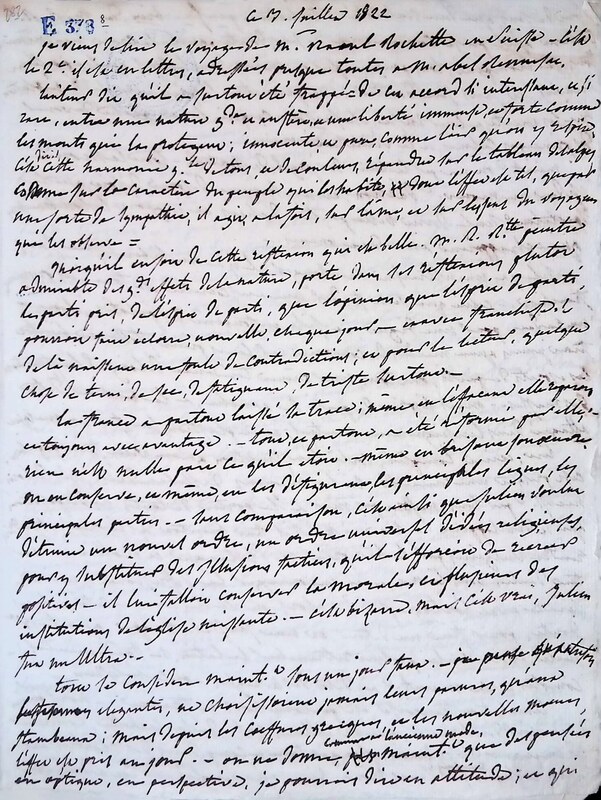 E 378 8
Ce 3 Juillet 1822
je viens de lire le voyage de M. Raoul Rochette en Suisse – C'est
le 2e. il est en lettres, adressées presque toutes a M. abel Remusat.
l'auteur dit qu'il a surtout été frappé de cet accord si interessant, et si
rare, entre une nature gde et austère, et une liberté immense et forte comme
les monts qui la protegent; innocente et pure, comme l'air qu'on y respire,
c'est dit il cette harmonie gle de tons, et de couleurs, répandue sur le tableau des alpes
comme sur le caractère du peuple qui les habite, dont l'effet est tel, que par
une sorte de sympathie, il agit a la fois, sur l'âme, et sur l'esprit du voyageur
qui les observe =
quoiqu'il en soit de cette reflexion qui est belle. M. R. Rtte peintre
admirable des gds effets de la nature, porte dans ses reflexions plutot
les partis pris, de l'esprit de parti, que l'opinion que l'esprit de parti,
pourroit faire éclore, nouvelle chaque jour – et avec franchise.
de là naissent une foule de contradictions; et pour le lecteur, quelque
chose de terni, de sec, de fatiguant de triste surtout –
la france a partout laissé sa trace; même en l'effacant elle
et toujours avec avantage. – tout, et partout, a été reformé par elle,
rien n'est nulle part ce qu'il etoit. – même en brisant son oeuvre
on en conserve, et même, en les défigurant, les principales lignes, les
principales parties. – sans comparaison, c'est ainsi que julien voulut
détruire un nouvel ordre, un ordre universel d'idées religieuses,
pour y substituer des illusions taries, qu'il s'efforcoit de recréer
positives – il lui falloit conserver la morale, et plusieurs des
institutions de l'eglise naissante. – c'est bizarre, mais c'est vrai, Julien
fut un Ultra. –
tout se considere maint.t sous un jour faux. –
elegantes, ne choisissoient jamais leurs parures, qu'aux
flambeaux; mais depuis les coeffures grecques, et les nouvelles moeurs,
l'effet est pris au jour. – on ne donne comme a l'ancienne mode, maint.t que des pensées
en optique, en perspective, je pourrois dire en attitude; et qui